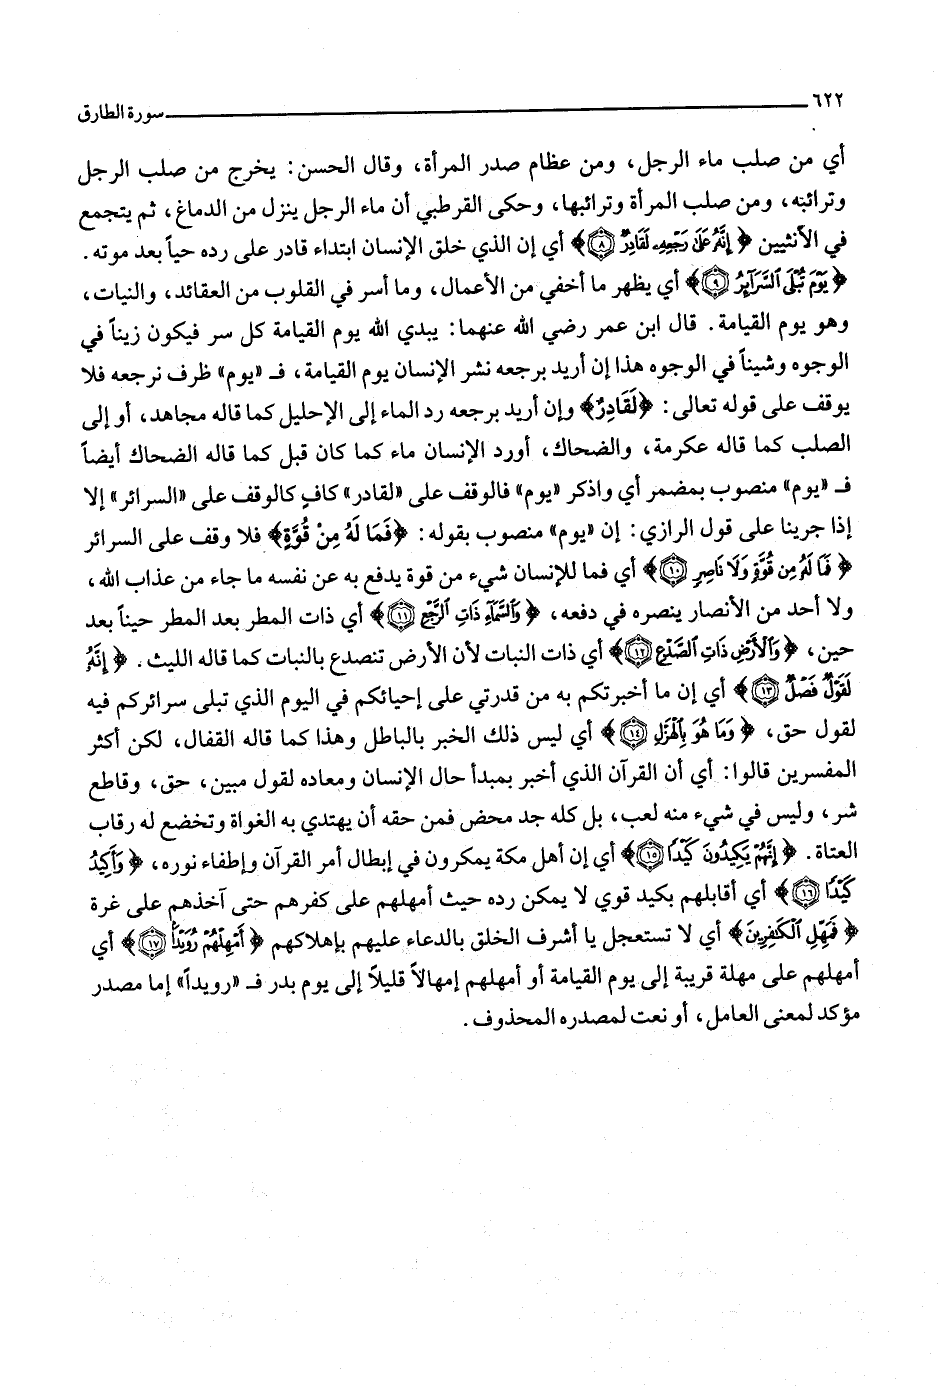 ٦٢٢ سورة الطارق
أي من صلب ماء الرجل، ومن عظام صدر المرأة، وقال الحسن: يخرج من صلب الرجل
وترائبه، ومن صلب المرأة وترائبها، وحكى القرطبي أن ماء الرجل ينزل من الدماغ، ثم يتجمع
في الأنثيين ﴿إِنَّهُ عَلَىٰ رَجْعِهِۦ لَقَادِرٌ ٨﴾ أي إن الذي خلق الإنسان ابتداء قادر على رده حياً بعد موته.
﴿يَوْمَ تُبْلَى ٱلسَّرَآئِرُ ٩﴾ أي يظهر ما أخفي من الأعمال، وما أسر في القلوب من العقائد، والنيات،
وهو يوم القيامة. قال ابن عمر رضي الله عنهما: يبدي الله يوم القيامة كل سر فيكون زيناً في
الوجوه وشيناً في الوجوه هذا إن أريد برجعه نشر الإنسان يوم القيامة، فـ «يوم» ظرف نرجعه فلا
يوقف على قوله تعالى: ﴿لَقَادِرٌ﴾ وإن أريد برجعه رد الماء إلى الإحليل كما قاله مجاهد، أو إلى
الصلب كما قاله عكرمة، والضحاك، أورد الإنسان ماء كما كان قبل كما قاله الضحاك أيضاً
فـ «يوم» منصوب بمضمر أي واذكر «يوم» فالوقف على «لقادر» كافٍ كالوقف على «السرائر» إلا
إذا جرينا على قول الرازي: إن «يوم» منصوب بقوله: ﴿فَمَا لَهُ مِنْ قُوَّةٍ﴾ فلا وقف على السرائر
﴿فَمَا لَهُۥ مِن قُوَّةٍ وَلَا نَاصِرٍ ١٠﴾ أي فما للإنسان شيء من قوة يدفع به عن نفسه ما جاء من عذاب الله،
ولا أحد من الأنصار ينصره في دفعه، ﴿وَٱلسَّمَآءِ ذَاتِ ٱلرَّجْعِ ١١﴾ أي ذات المطر بعد المطر حيناً بعد
حين، ﴿وَٱلْأَرْضِ ذَاتِ ٱلصَّدْعِ ١٢﴾ أي ذات النبات لأن الأرض تنصدع بالنبات كما قاله الليث. ﴿إِنَّهُۥ
لَقَوْلٌ فَصْلٌ ١٣﴾ أي إن ما أخبرتكم به من قدرتي على إحيائكم في اليوم الذي تبلى سرائركم فيه
لقول حق، ﴿وَمَا هُوَ بِٱلْهَزْلِ ١٤﴾ أي ليس ذلك الخبر بالباطل وهذا كما قاله القفال، لكن أكثر
المفسرين قالوا: أي أن القرآن الذي أخبر بمبدأ حال الإنسان ومعاده لقول مبين، حق، وقاطع
شر، وليس في شيء منه لعب، بل كله جد محض فمن حقه أن يهتدي به الغواة وتخضع له رقاب
العتاة. ﴿إِنَّهُمْ يَكِيدُونَ كَيْدًا ١٥﴾ أي إن أهل مكة يمكرون في إبطال أمر القرآن وإطفاء نوره، ﴿وَأَكِيدُ
كَيْدًا ١٦﴾ أي أقابلهم بكيد قوي لا يمكن رده حيث أمهلهم على كفرهم حتى آخذهم على غرة
﴿فَمَهِّلِ ٱلْكَٰفِرِينَ﴾ أي لا تستعجل يا أشرف الخلق بالدعاء عليهم بإهلاكهم ﴿أَمْهِلْهُمْ رُوَيْدًۢا ١٧﴾ أي
أمهلهم على مهلة قريبة إلى يوم القيامة أو أمهلهم إمهالاً قليلاً إلى يوم بدر فـ «رويداً» إما مصدر
مؤكد لمعنى العامل، أو نعت لمصدره المحذوف.